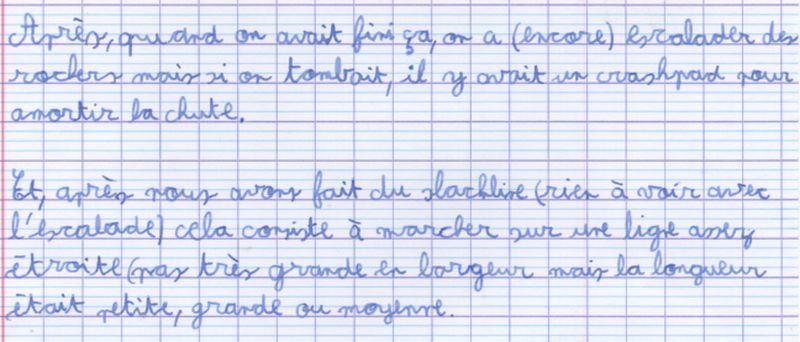 Après, quand on avait fini ça, on a (encore) escalader des
rochers mais si on tombait, il y avait un crashpad pour
amortir la chute.
Et, après nous avons fait du slackline (rien à voir avec
l'escalade) cela consiste à marcher sur une ligne assez
étroite (pas très grande en largeur mais la longueur
était petite, grande ou moyenne.